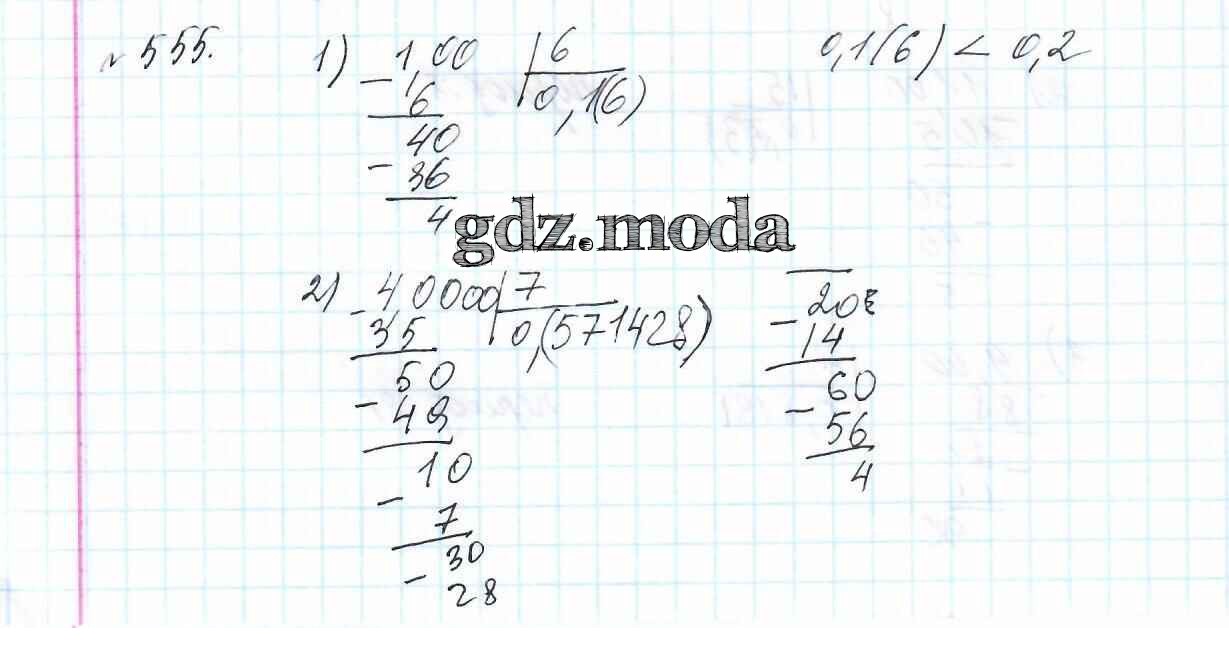 № 555.
1) 1,00 | 6
0,1(6)
0,1(6) < 0,2
- 6
40
- 36
4
gdz.moda
2) - 4,0000 | 7
0,(571428)
35
50
- 49
10
- 7
30
- 28
20
- 14
60
- 56
4